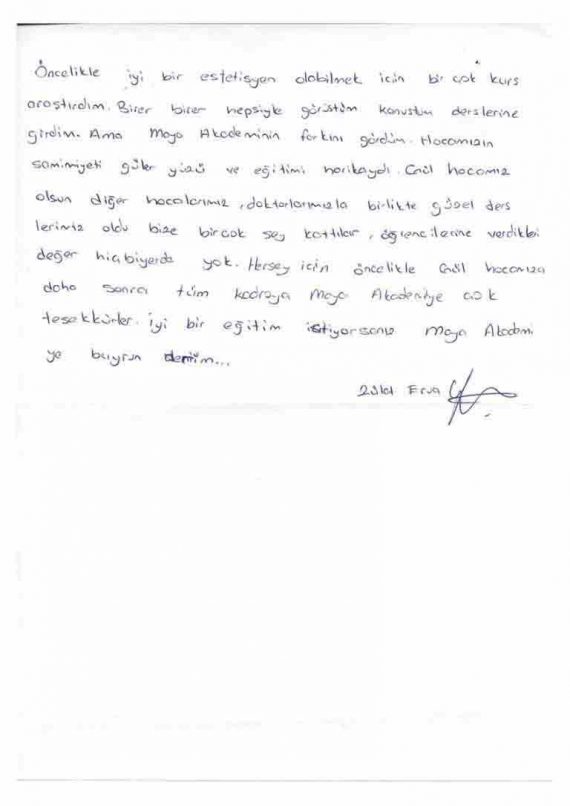 Öncelikle iyi bir estetisyen olabilmek için bir çok kurs
araştırdım. Birer birer hepsiyle görüştüm konuştum derslerine
girdim. Ama Maya Akademinin farkını gördüm. Hocamızın
samimiyeti güler yüzü ve eğitimi harikaydı. Gül hocamız
olsun diğer hocalarımız, doktorlarımızla birlikte güzel ders
lerimiz oldu bize birçok şey kattılar, öğrencilerine verdikleri
değer hiçbiyerde yok. Herşey için öncelikle Gül hocamıza
daha sonra tüm kadroya Maya Akademiye çok
teşekkürler. İyi bir eğitim istiyorsanız Maya Akademi
ye buyrun derim...
Erva